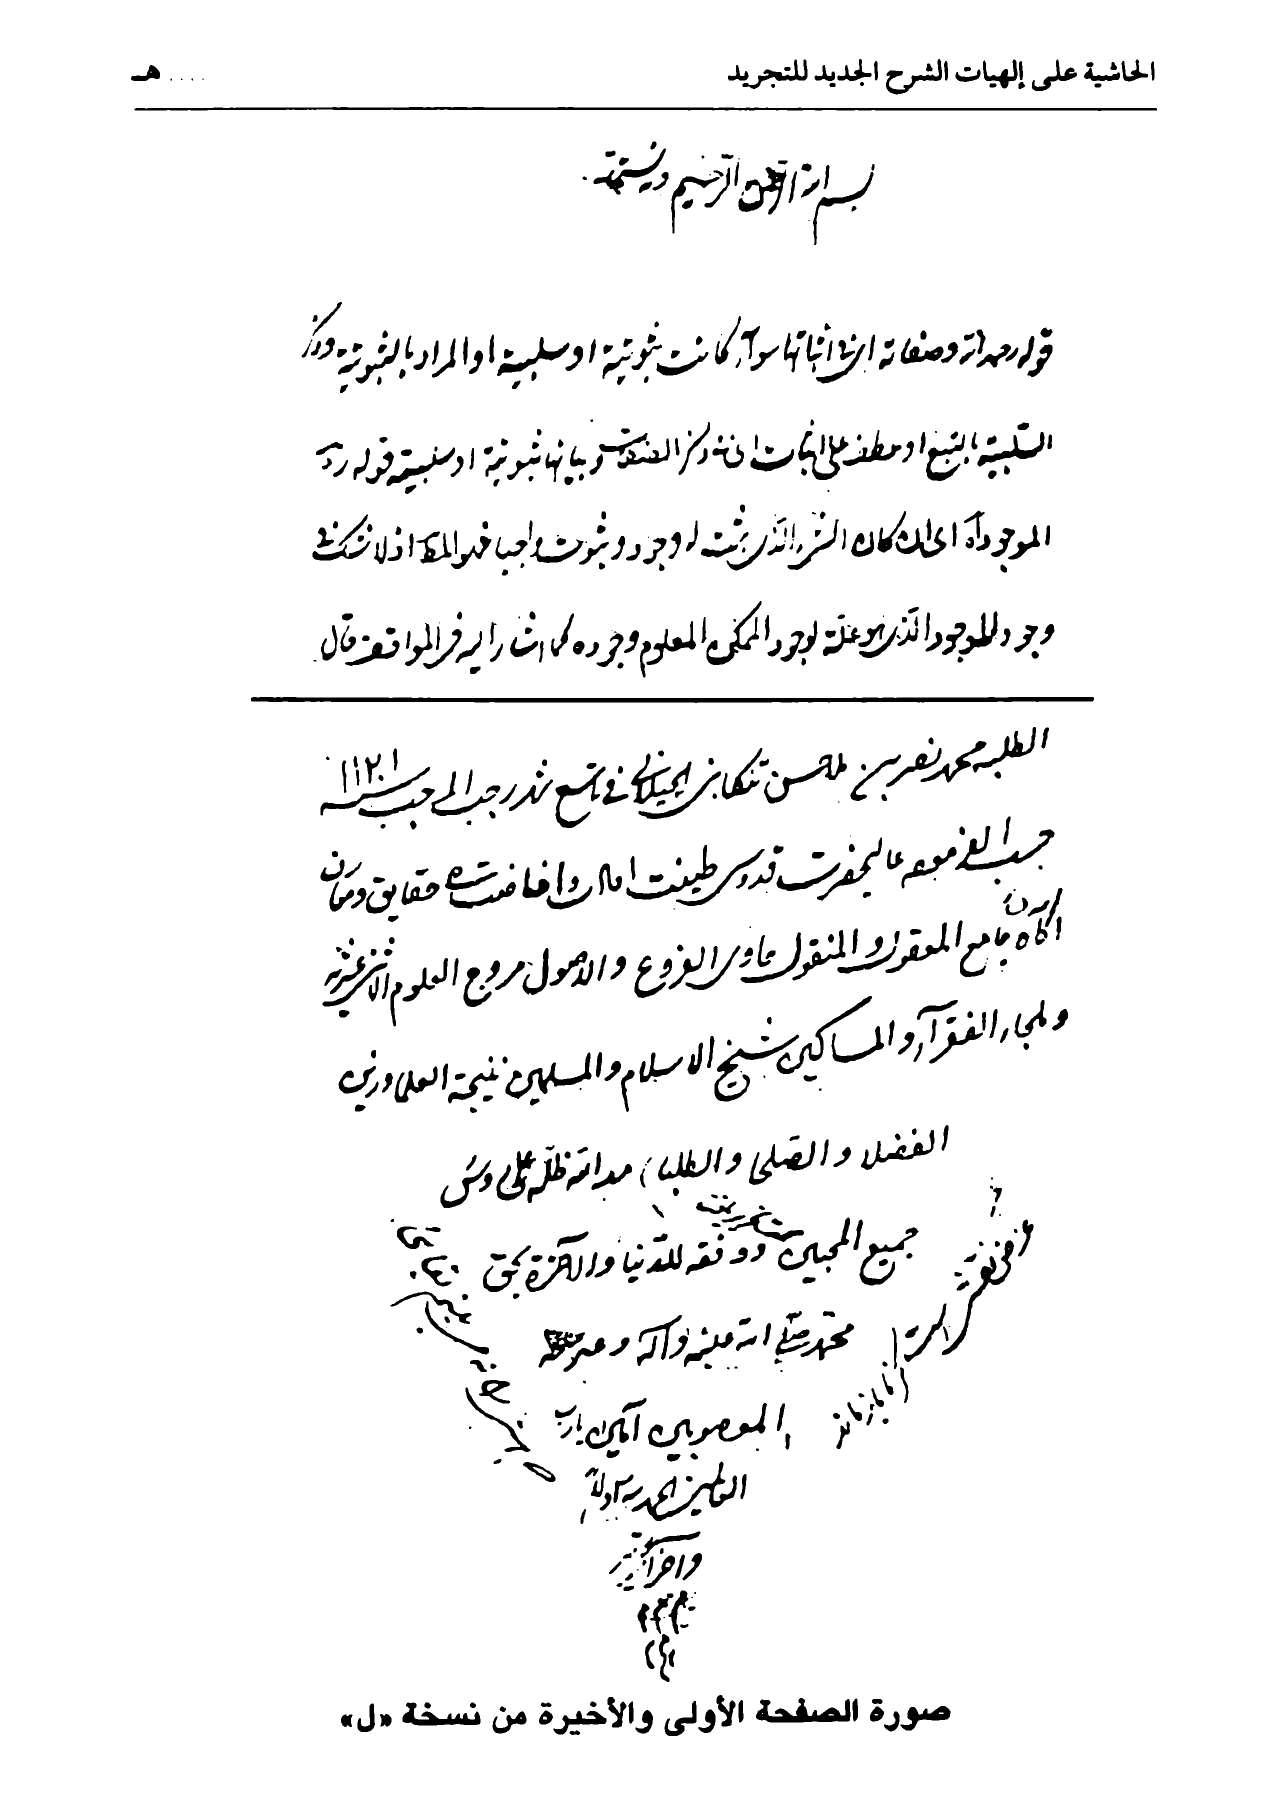 الحاشية على إلهيات الشرح الجديد للتجريد .... هـ
بسم الله الرحمن الرحيم وبه نستعين
قوله رحمه الله وصفاته اى في اثباتها سوآء كانت ثبوتية او سلبية او المراد بالثبوتية وذكر
السلبية بالتبع او عطف على اثبات اى في ذكر الصفات وبيانها ثبوتية او سلبية قوله
الموجود آه اى ان كان الشىء الذى يثبت له وجود وثبوت واجبا فهو المط اذ لا شك في
وجود الموجود الذى هو علة لوجود الممكن المعلوم وجوده كما اشار اليه في المواقف قال
الطلبه محمد نصير بن ملا حسن تنكابنى الجيلانى في تاسع شهر رجب المرجب سنه ١١٢٠
حسب الفرموده عاليحضرت قدوسى طينت افادت وافاضت پناه حقايق ومعارف
آگاه جامع المعقول والمنقول حاوى الفروع والاصول مروج العلوم الاثنى عشريه
وملجاء الفقرآء والمساكين شيخ الاسلام والمسلمين نتيجة العلماء وزين
الفضلا و الصلحا والطلبا مد الله ظله على رؤس
جميع المحبين ووفقه للدنيا والآخرة بحق
محمد صلى الله عليه وآله وعترته
المعصومين آمين يارب
العالمين الحمد لله اولا
وآخرا
صورة الصفحة الأولى والأخيرة من نسخة «ل»